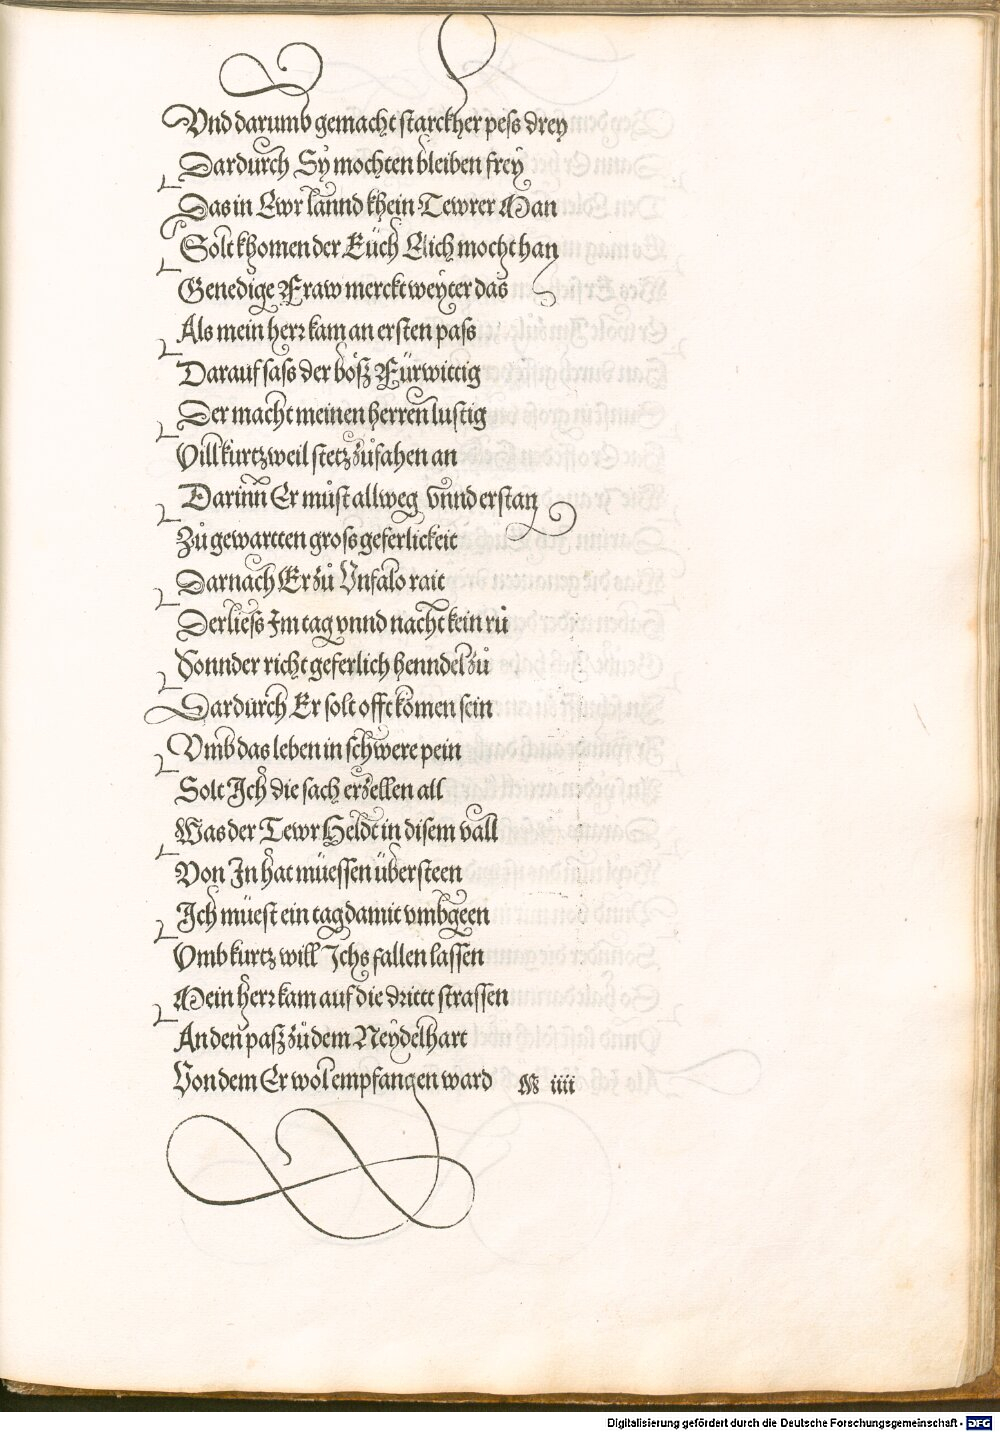 Vnd darumb gemacht starckher pess drey
Dardurch Sy mochten bleiben frey
Das in Ewr lannd khein Tewrer Man
Solt khomen der Euch Eüch Eelich mocht han
Genedige Fraw merckt weyter das
Als mein herr kam an ersten pass
Darauf sass der bösz Fürwittig
Der macht meinen herren lustig
Vill kurtzweil stetz zůfahen an
Darinn Er můst allweg vnnd erstan
Zů gewartten gross geferlickeit
Darnach Er zů Vnfalo rait
Der liess Im tag vnnd nacht kein rů
Sonnder richt geferlich henndel zů
Dardurch Er solt offt komen sein
Vmb das leben in schwere pein
Solt Ich die sach erzellen all
Was der Tewr Heldt in disem vall
Von In hat müessen übersteen
Ich müest ein tag damit vmbgeen
Vmb kurtz will Ichs fallen lassen
Mein herr kam auf die dritt strassen
An den pasz zů dem Neydelhart
Von dem Er wol empfangen ward W iiii
Digitalisierung gefördert durch die Deutsche Forschungsgemeinschaft - DFG